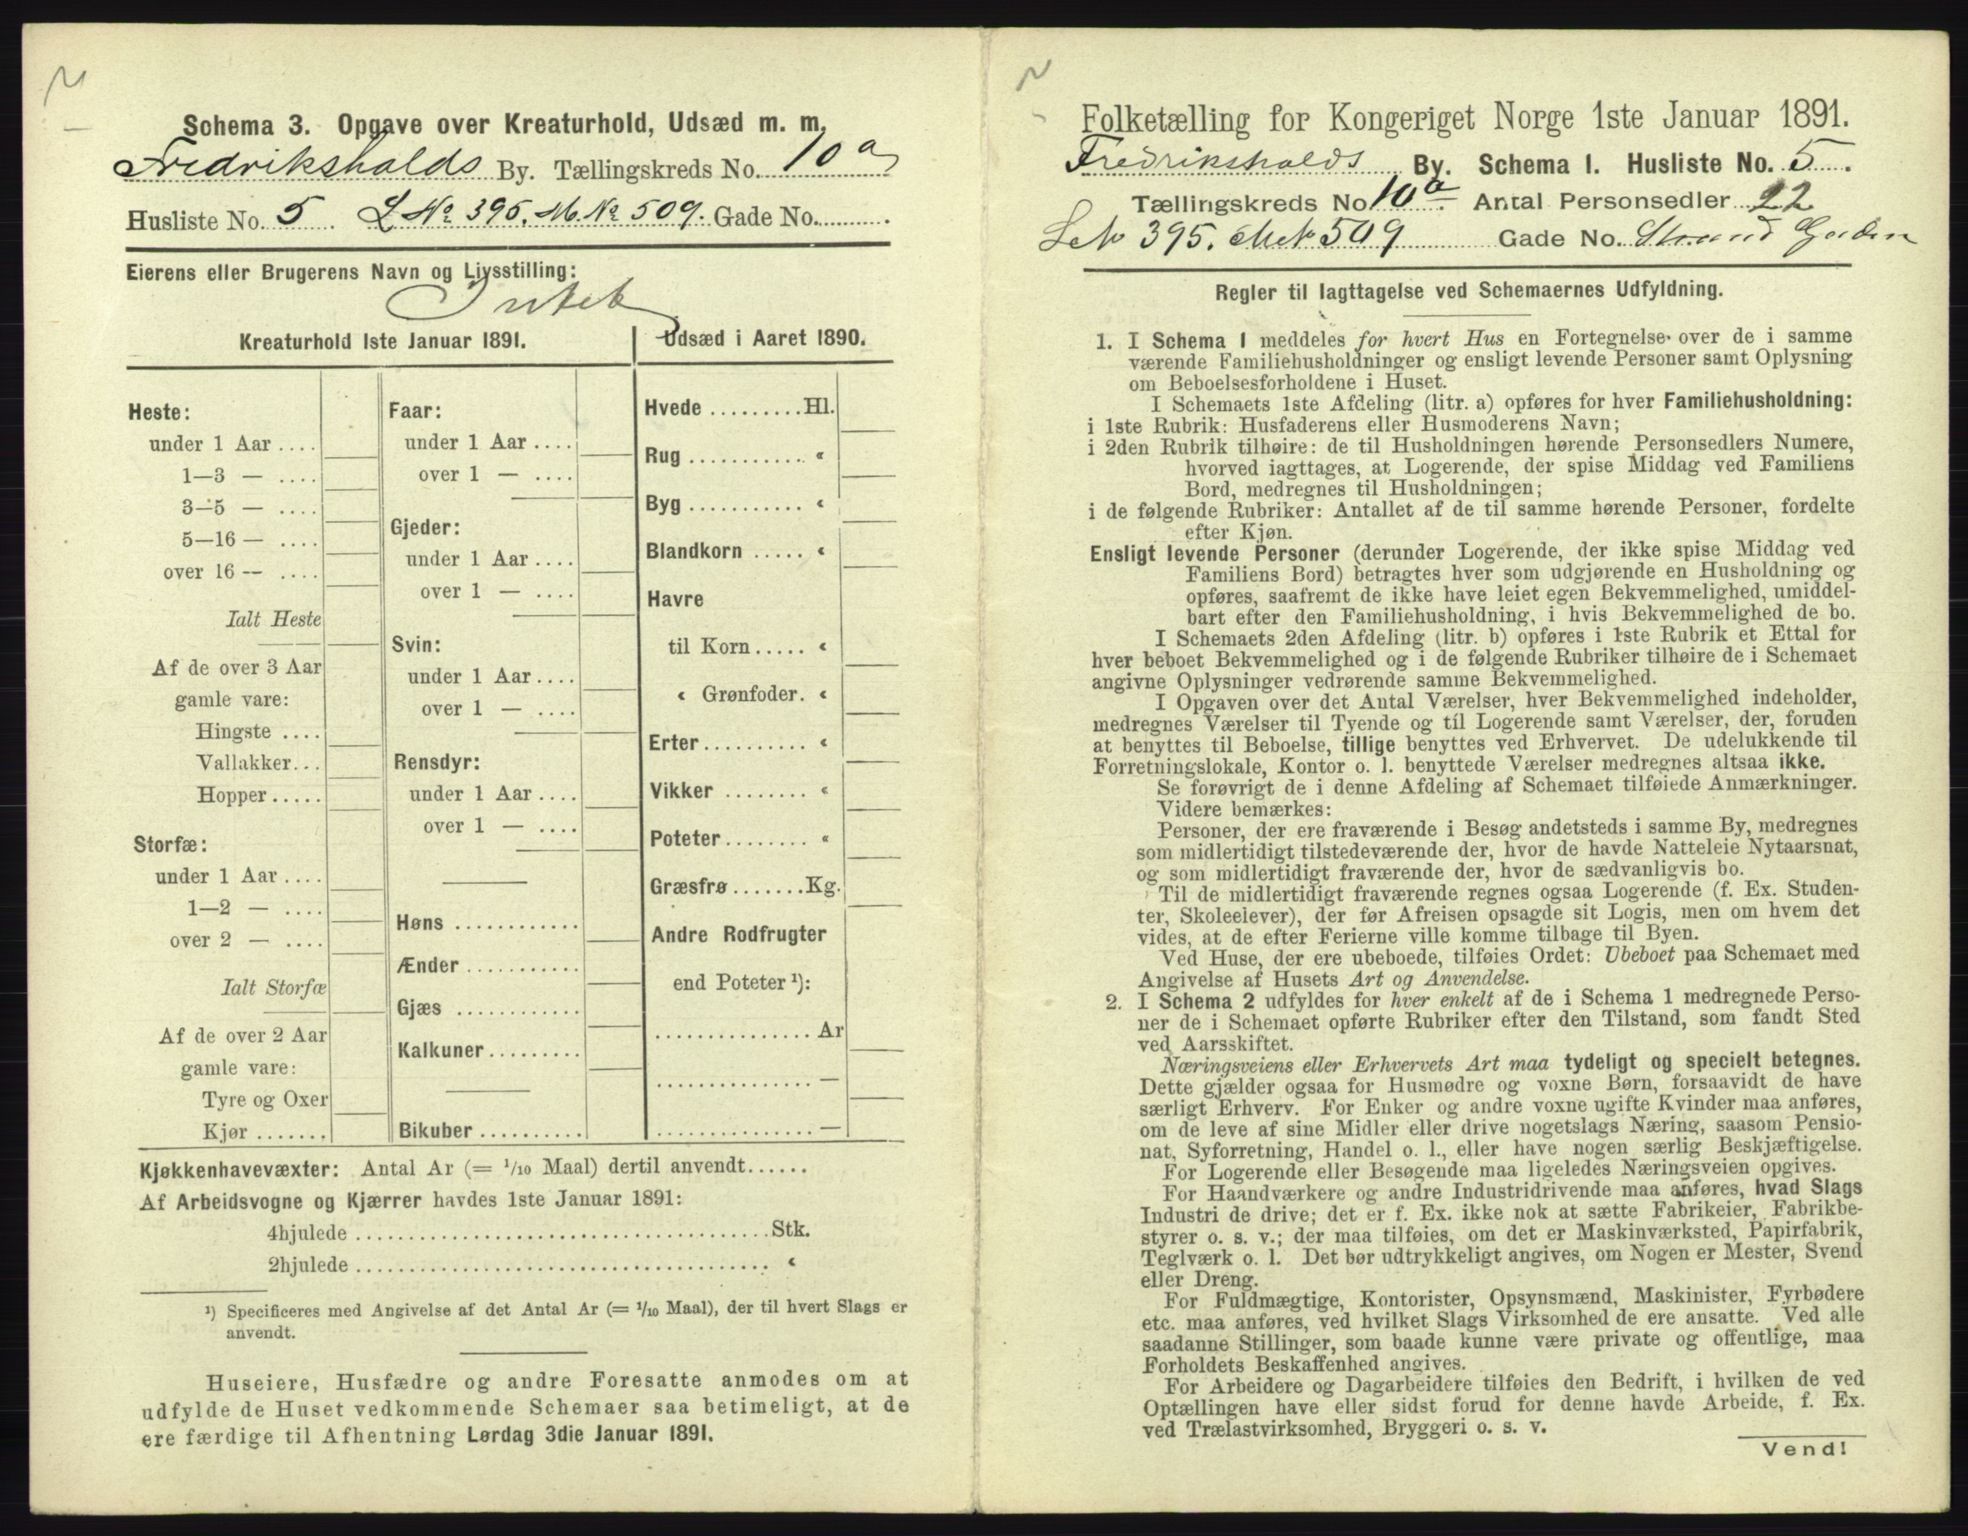 Schema 3. Opgave over Kreaturhold, Udsæd m. m.
Fredriksholds By. Tællingskreds No. 10 a
Husliste No. 5 L No 395. M. No 509. Gade No.
Eierens eller Brugerens Navn og Livsstilling:
Intet
Kreaturhold 1ste Januar 1891.
Heste:
under 1 Aar ....
1—3 — ....
3—5 — ....
5—16 — ....
over 16 — ....
Ialt Heste
Af de over 3 Aar
gamle vare:
Hingste ....
Vallakker...
Hopper.....
Storfæ:
under 1 Aar ....
1—2 — ....
over 2 — ....
Ialt Storfæ
Af de over 2 Aar
gamle vare:
Tyre og Oxer
Kjør .......
Faar:
under 1 Aar ....
over 1 — ....
Gjeder:
under 1 Aar ....
over 1 — ....
Svin:
under 1 Aar ....
over 1 — ....
Rensdyr:
under 1 Aar ....
over 1 — ....
Høns ............
Ænder ...........
Gjæs ............
Kalkuner.........
Bikuber ..........
Udsæd i Aaret 1890.
Hvede .........Hl.
Rug ........... «
Byg ........... «
Blandkorn ..... «
Havre
til Korn ..... «
« Grønfoder. «
Erter.......... «
Vikker ........ «
Poteter........ «
Græsfrø .......Kg.
Andre Rodfrugter
end Poteter ¹):
............... Ar
............... —
............... —
Kjøkkenhavevæxter: Antal Ar (= 1/10 Maal) dertil anvendt......
Af Arbeidsvogne og Kjærrer havdes 1ste Januar 1891:
4hjulede ......................................Stk.
2hjulede ...................................... «
¹) Specificeres med Angivelse af det Antal Ar (= 1/10 Maal), der til hvert Slags er
anvendt.
Huseiere, Husfædre og andre Foresatte anmodes om at
udfylde de Huset vedkommende Schemaer saa betimeligt, at de
ere færdige til Afhentning Lørdag 3die Januar 1891.
Folketælling for Kongeriget Norge 1ste Januar 1891.
Fredriksholds By. Schema 1. Husliste No. 5.
Tællingskreds No 10 a. Antal Personsedler 22
395. 509 Gade No. Strand Gaden
Regler til Iagttagelse ved Schemaernes Udfyldning.
1. I Schema 1 meddeles for hvert Hus en Fortegnelse over de i samme
værende Familiehusholdninger og ensligt levende Personer samt Oplysning
om Beboelsesforholdene i Huset.
I Schemaets 1ste Afdeling (litr. a) opføres for hver Familiehusholdning:
i 1ste Rubrik: Husfaderens eller Husmoderens Navn;
i 2den Rubrik tilhøire: de til Husholdningen hørende Personsedlers Numere,
hvorved iagttages, at Logerende, der spise Middag ved Familiens
Bord, medregnes til Husholdningen;
i de følgende Rubriker: Antallet af de til samme hørende Personer, fordelte
efter Kjøn.
Ensligt levende Personer (derunder Logerende, der ikke spise Middag ved
Familiens Bord) betragtes hver som udgjørende en Husholdning og
opføres, saafremt de ikke have leiet egen Bekvemmelighed, umiddel-
bart efter den Familiehusholdning, i hvis Bekvemmelighed de bo.
I Schemaets 2den Afdeling (litr. b) opføres i 1ste Rubrik et Ettal for
hver beboet Bekvemmelighed og i de følgende Rubriker tilhøire de i Schemaet
angivne Oplysninger vedrørende samme Bekvemmelighed.
I Opgaven over det Antal Værelser, hver Bekvemmelighed indeholder,
medregnes Værelser til Tyende og til Logerende samt Værelser, der, foruden
at benyttes til Beboelse, tillige benyttes ved Erhvervet. De udelukkende til
Forretningslokale, Kontor o. l. benyttede Værelser medregnes altsaa ikke.
Se forøvrigt de i denne Afdeling af Schemaet tilføiede Anmærkninger.
Videre bemærkes:
Personer, der ere fraværende i Besøg andetsteds i samme By, medregnes
som midlertidigt tilstedeværende der, hvor de havde Natteleie Nytaarsnat,
og som midlertidigt fraværende der, hvor de sædvanligvis bo.
Til de midlertidigt fraværende regnes ogsaa Logerende (f. Ex. Studen-
ter, Skoleelever), der før Afreisen opsagde sit Logis, men om hvem det
vides, at de efter Ferierne ville komme tilbage til Byen.
Ved Huse, der ere ubeboede, tilføies Ordet: Ubeboet paa Schemaet med
Angivelse af Husets Art og Anvendelse.
2. I Schema 2 udfyldes for hver enkelt af de i Schema 1 medregnede Perso-
ner de i Schemaet opførte Rubriker efter den Tilstand, som fandt Sted
ved Aarsskiftet.
Næringsveiens eller Erhvervets Art maa tydeligt og specielt betegnes.
Dette gjælder ogsaa for Husmødre og voxne Børn, forsaavidt de have
særligt Erhverv. For Enker og andre voxne ugifte Kvinder maa anføres,
om de leve af sine Midler eller drive nogetslags Næring, saasom Pensio-
nat, Syforretning, Handel o. l., eller have nogen særlig Beskjæftigelse.
For Logerende eller Besøgende maa ligeledes Næringsveien opgives.
For Haandværkere og andre Industridrivende maa anføres, hvad Slags
Industri de drive; det er f. Ex. ikke nok at sætte Fabrikeier, Fabrikbe-
styrer o. s. v.; der maa tilføies, om det er Maskinværksted, Papirfabrik,
Teglværk o. l. Det bør udtrykkeligt angives, om Nogen er Mester, Svend
eller Dreng.
For Fuldmægtige, Kontorister, Opsynsmænd, Maskinister, Fyrbødere
etc. maa anføres, ved hvilket Slags Virksomhed de ere ansatte. Ved alle
saadanne Stillinger, som baade kunne være private og offentlige, maa
Forholdets Beskaffenhed angives.
For Arbeidere og Dagarbeidere tilføies den Bedrift, i hvilken de ved
Optællingen have eller sidst forud for denne havde Arbeide, f. Ex.
ved Trælastvirksomhed, Bryggeri o. s. v.
Vend!